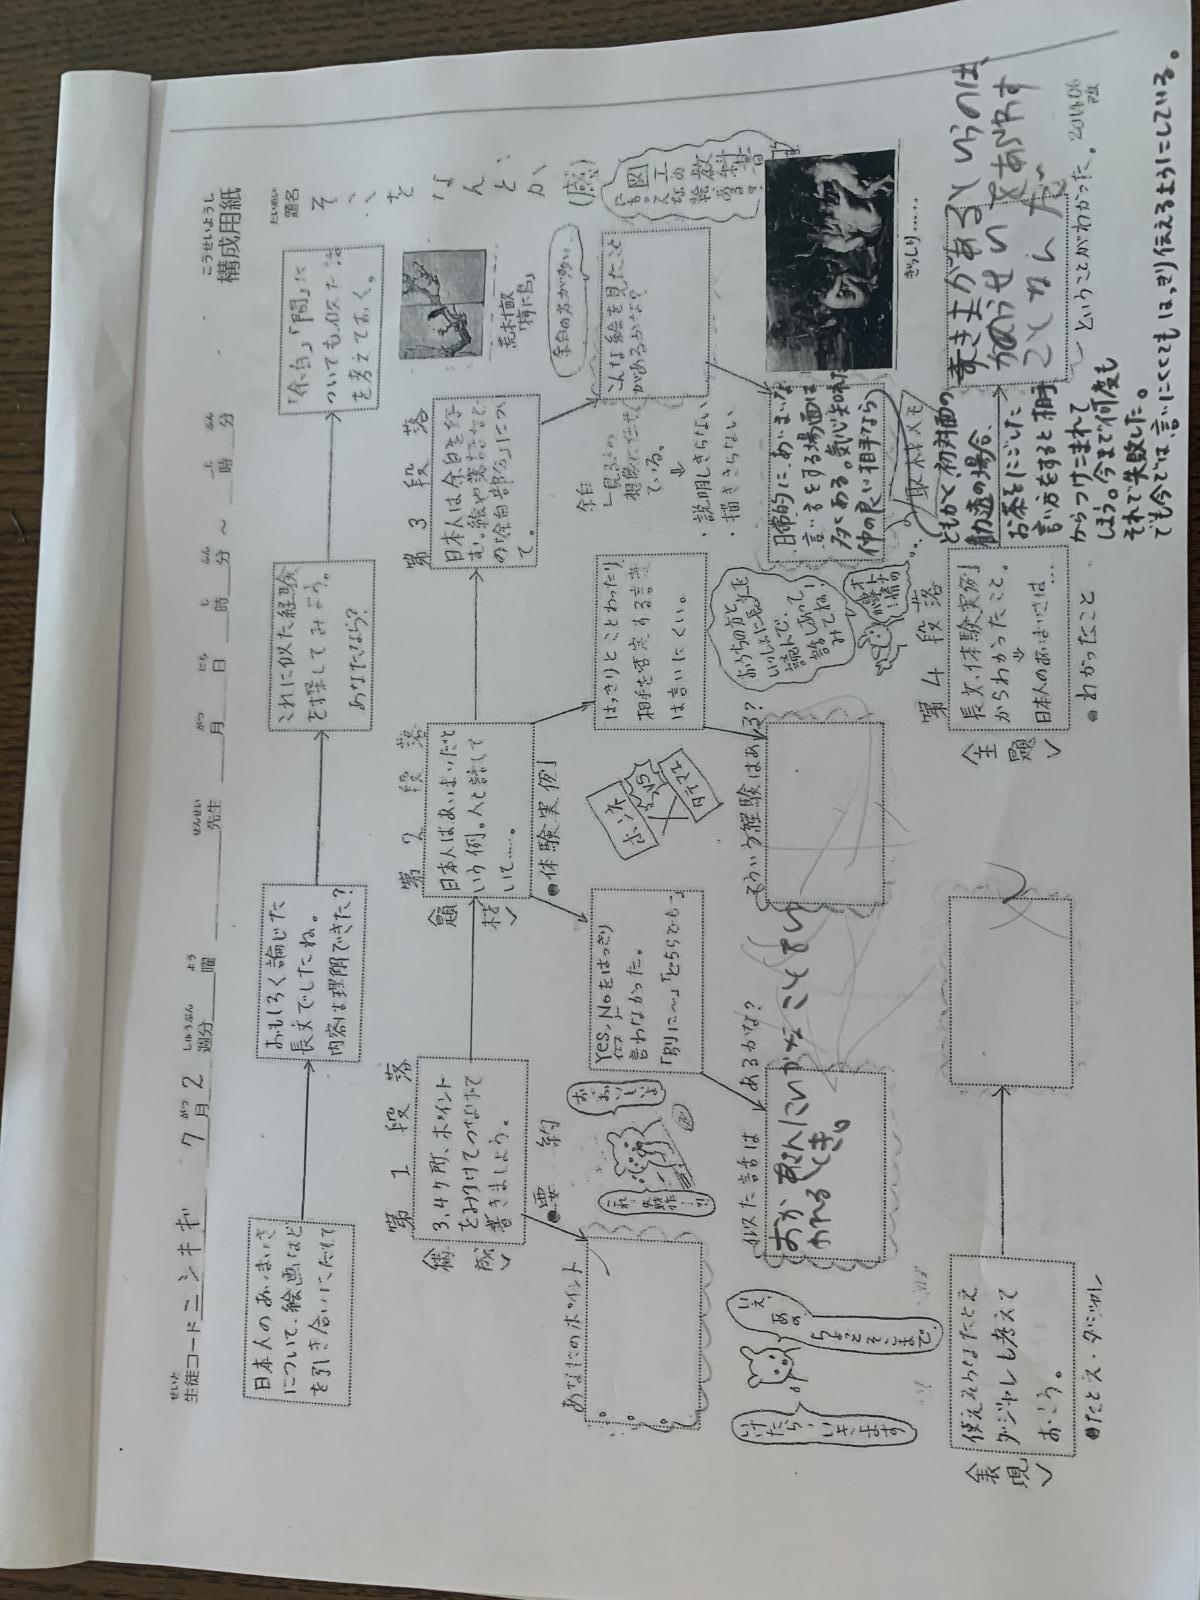 こうせいようし
構成用紙
せいと
生徒コード ニシキギ 7月2週分 曜 先生 月 日 時 分 ～ 時 分
がつ しゅうぶん よう せんせい がつ にち じ ふん じ ふん
だいめい
題名
そこをなんとか
(感)
日本人のあいまいさ
について、絵画など
を引き合いにだして
おもしろく論じた
長文でしたね。
内容は理解できた?
これに似た経験
を探してみよう。
あなたなら?
「余白」「間」に
ついても似た話
を考えておく。
第1段落
〈構成〉
3、4ヶ所、ポイント
をみつけてつなげて
書きましょう。
●要約
あなたのポイント
これ
失敗作…?!
お、おいしいよ
第2段落
〈題材〉
日本人はあいまいだと
いう例。人と話して
いて……。
●体験実例
Yes、Noをはっきり
言わなかった。
「別に～」「どちらでも…」
はっきりとことわったり
相手を否定する言葉
は言いにくい。
ホンネ
VS
タテマエ
第3段落
日本人は余白を好
む。絵や落語など
の「余白部分」につい
て。
余白
→見る人の
想像に任せ
ている。
↓
・説明しきらない
・描ききらない
荒木徹
「梅に鳥」
余白の方が多い
こんな絵を見たこと
があるかな?
図工の教科書
ぎっしり……
似た話はあるかな?
おかあさんに
いわれるとき。
そういう経験はある?
おうちの方と
いっしょに長文を
読んで、
話しあって
みてね!
いえ
あの
ちょっとそこまで。
いけたら、いきます
日常的に、あいまいな
言い方をする場面は
多くある。気心知れた
仲の良い相手なら
ともかく、初対面の
勧誘の場合、
お茶をにごした
言い方をすると相手
からつけこまれて
しまう。今まで何度も
それで失敗した。
でも今では、言いにくくてもはっきり伝えるようにしている。
取材メモ
〈表現〉
使えそうなたとえ
ダジャレも考えて
おこう。
●たとえ・ダジャレ
第4段落
〈主題〉
長文、体験実例
からわかったこと。
↓
日本人のあいまいさは…
●わかったこと
ということがわかった。